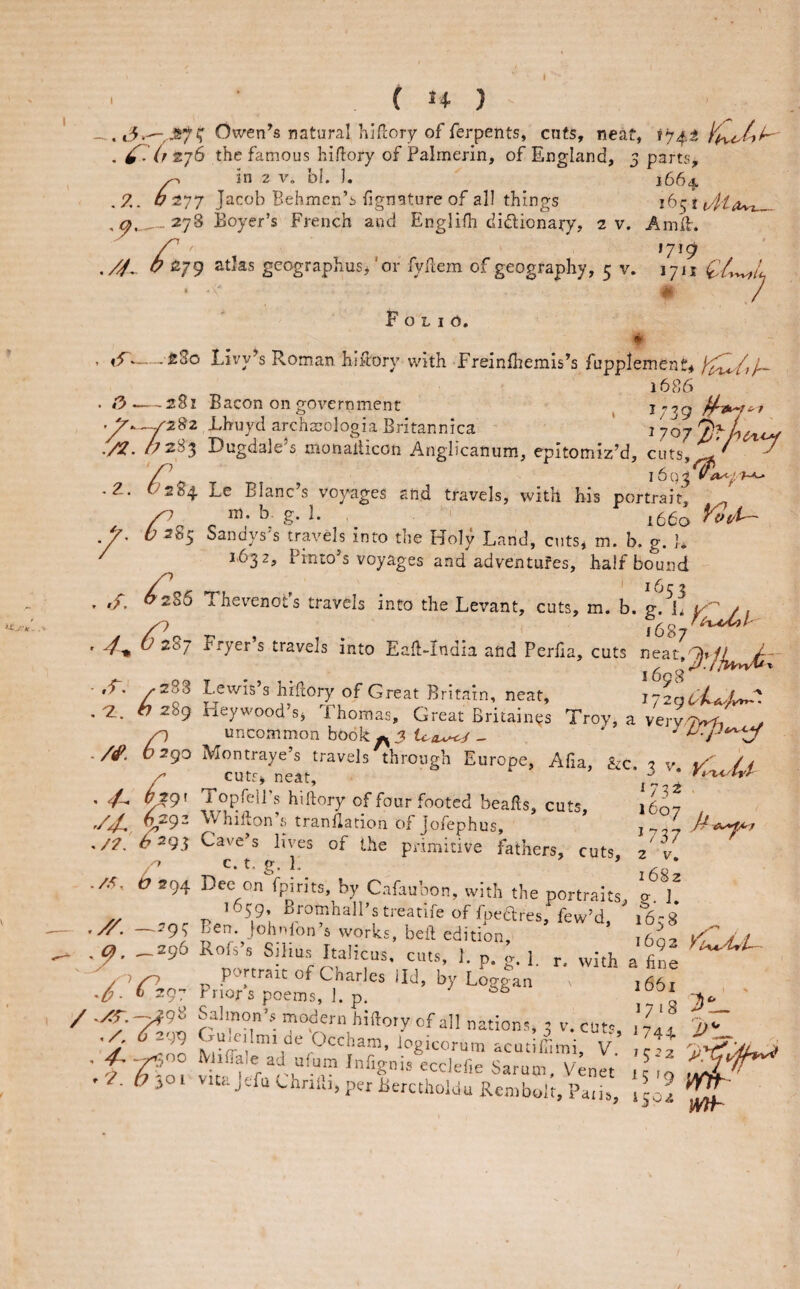 ( 14 )
. 3. — 275 Owen's natural hiſtory of ſerpents, cuts, neat, 1742
. 6. 6 276 the famous hiſtory of Palmerin, of England, 3 parts,
in 2 v. bl. l. 1664
. 2. 6 277 Jacob Behmen's ſignature of all things 1651
. 9. — 278 Boyer's French and Engliſh dictionary, 2 v. Amſt.
1719
. 14. 6 279 atlas geographus, or ſyſtem of geography, 5 v. 1711
FOLIO.
. 5 — 280 Livy's Roman hiſtory with Freinſhemis's ſupplement,
1686
. 3 — 281 Bacon on government 1739
. 7. — 282 Lhuyd archæologia Britannica 1707
. 12. 6 283 Dugdale's monaſticon Anglicanum, epitomiz'd, cuts,
1693
. 2. 6 284 Le Blanc's voyages and travels, with his portrait,
m. b. g. l. 1660
. 7. 6 285 Sandys's travels into the Holy Land, cuts, m. b. g. l.
1632, Pinto's voyages and adventures, half bound
1653
. 5. 6 286 Thevenot's travels into the Levant, cuts, m. b. g. l.
1687
. 4. 6 287 Fryer's travels into Eaſt-India and Perſia, cuts neat,
1698
. 5. 288 Lewis's hiſtory of Great Britain, neat, 1729
. 2. 6 289 Heywood's, Thomas, Great Britaines Troy, a very
uncommon book ^ 3 leaves
. 18. 6 290 Montraye's travels through Europe, Aſia, &c. 3 v.
cuts, neat, 1732
. 4. 6 291 Topſell's hiſtory of four footed beaſts, cuts, 1607
. 14. 6 292 Whiſton's tranſlation of Joſephus, 1737
. 12. 6 293 Cave's lives of the primitive fathers, cuts, 2 v.
c. t. g. l. 1682
. 15. 6 294 Dee on ſpirits, by Caſaubon, with the portraits, g. l.
1659, Bromhall's treatiſe of ſpectres, ſew'd, 1658
. 11. — 295 Ben. Johnſon's works, beſt edition, 1692
. 9. — 296 Roſs's Silius Italicus, cuts, l. p. g. l. r. with a fine
portrait of Charles IId, by Loggan 1661
. 6. 6 297 Prior's poems, l. p. 1718
/ . 15. — 298 Salmon's modern hiſtory of all nations, 3 v. cuts, 1744
. /. 6 299 Guleilmi de Occham, logicorum acutiſſimi, V. 1522
. 4. — 300 Miſſale ad uſum Inſignis eccleſie Sarum, Venet 1519
. 2. 6 301 vita Jeſu Chriſti, per Berctholdu Rembolt, Paris, 1502